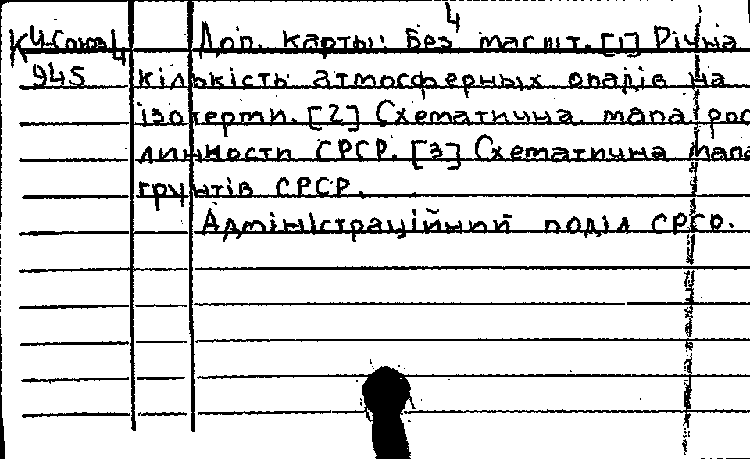 4
К Ч-Союз 4 Доп. карты: Без масшт. [1] Річна
945 кількість атмосферных опадів на
ізотерми. [2] Схематична мапа рос
линности СРСР. [3] Схематична мапа
грунтів СРСР.
Адміністраційний поділ СРСР.